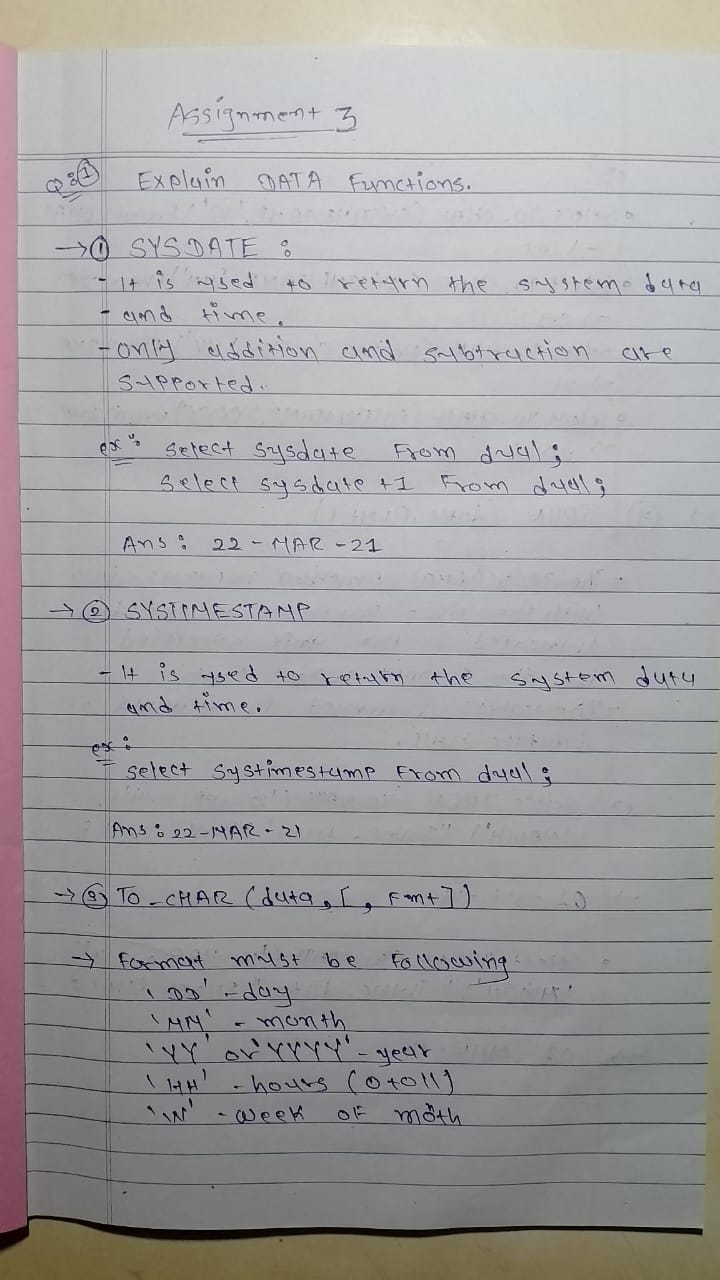 Assignment 3
Q:① Explain DATA Functions.
→① SYSDATE :
- It is used to return the system data
- and time.
- only addition and subtraction are
supported.
ex: select sysdate From dual;
select sysdate +1 From dual;
Ans: 22-MAR-21
→② SYSTIMESTAMP
- It is used to return the system data
and time.
ex:
select systimestamp From dual;
Ans: 22-MAR-21
→③ TO_CHAR (data, [, Fmt])
→ Format must be following
'DD' - day
'MM' - month
'YY' or 'YYYY' - year
'HH' - hours (0 to 11)
'W' - week OF moth